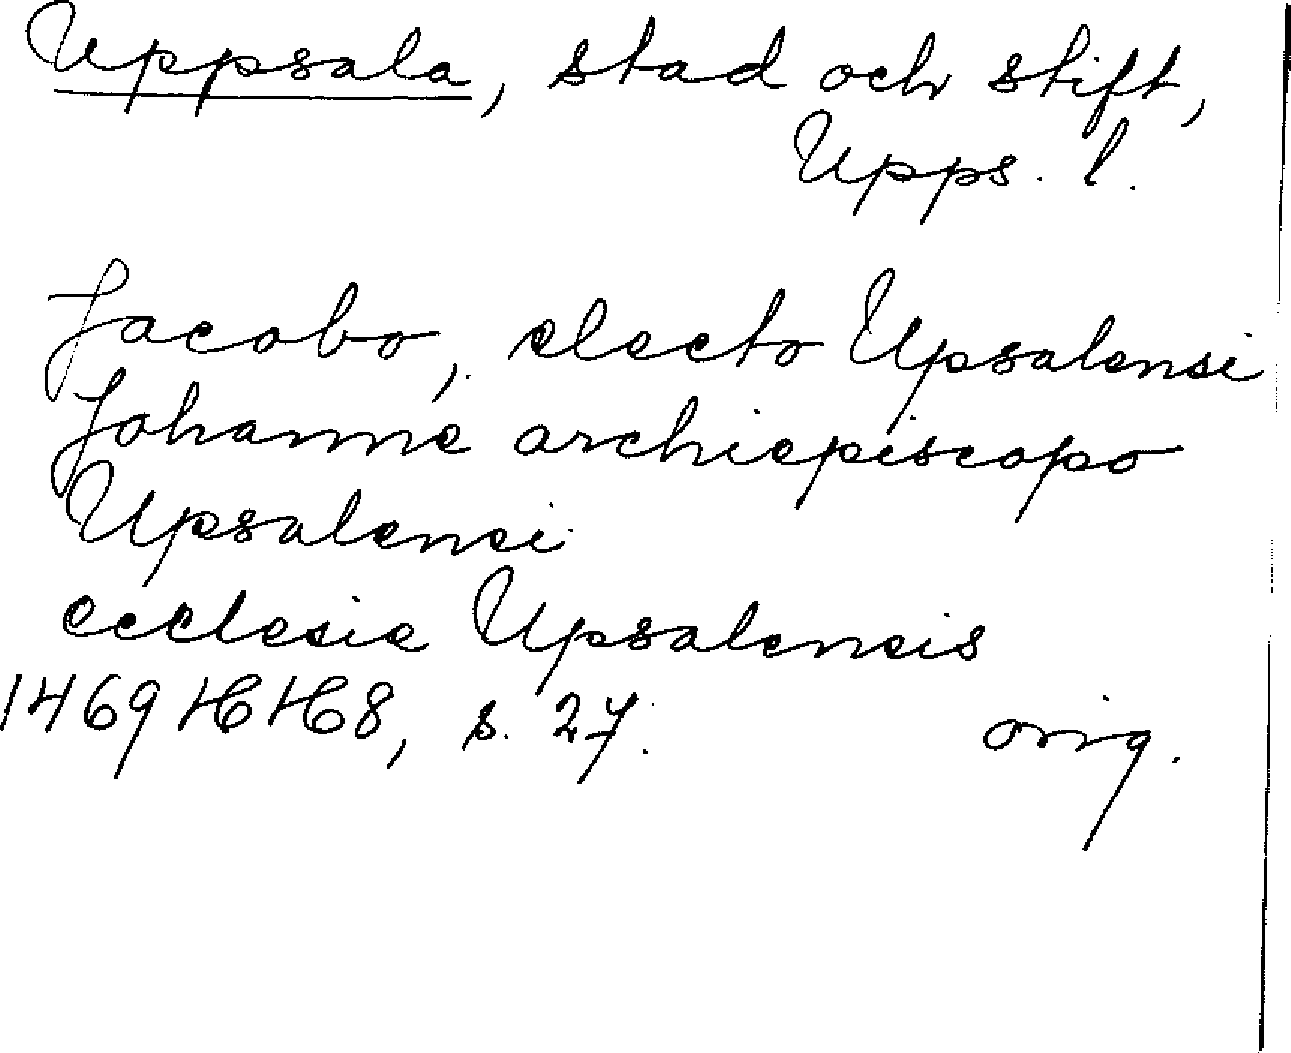 Uppsala, stad och stift,
Upps. l.
Jacobo, electo Upsalensi
Johanne archiepiscopo
Upsalensi
ecclesie Upsalensis
1469 HH8, s. 27. orig.